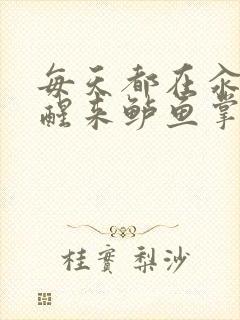 每天都在汆
醒来鲈鱼掌
桂实梨沙